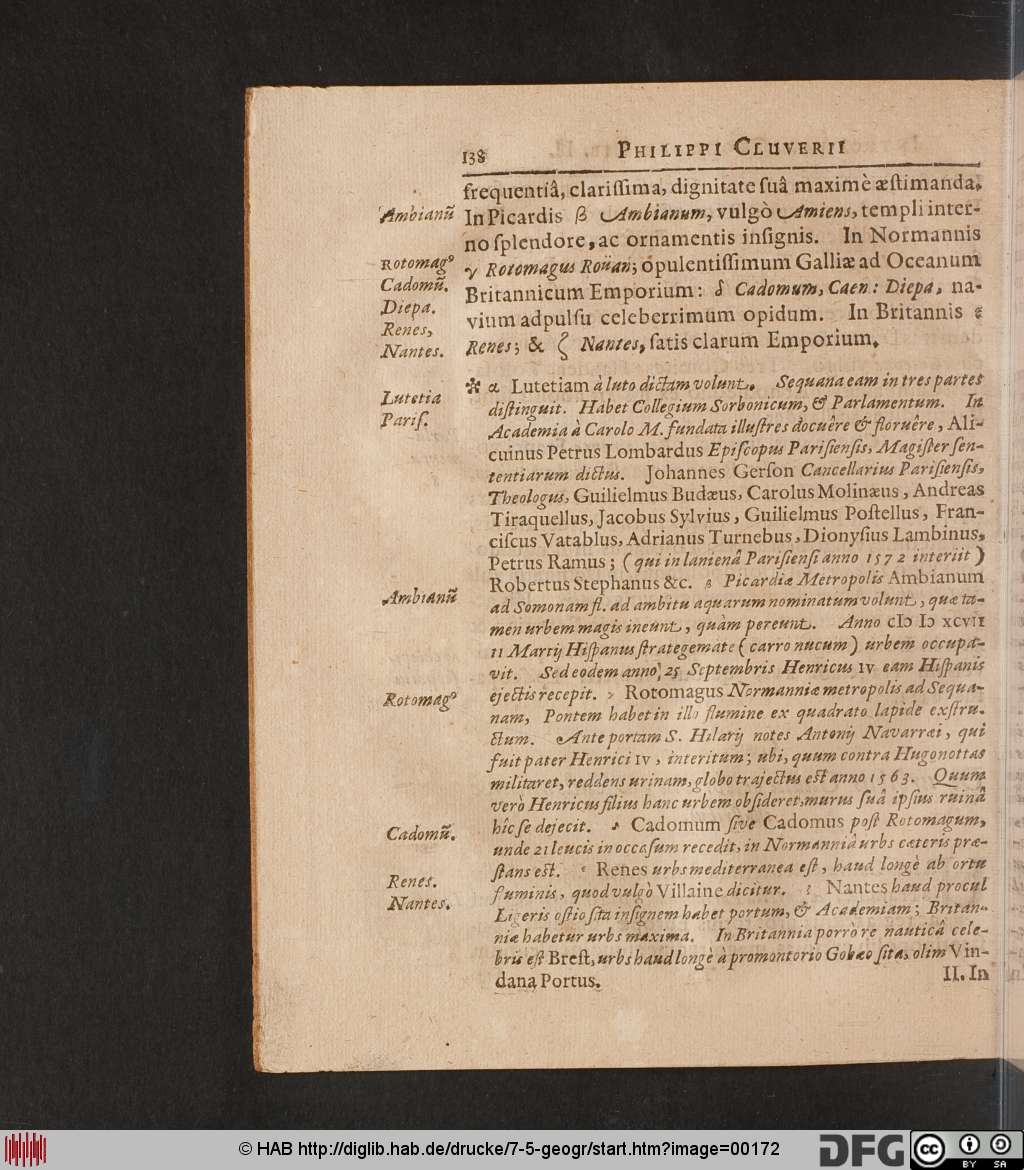 138 PHILIPPI CLUVERII
frequentiâ, clariſſima, dignitate ſuâ maximè æſtimanda.
Ambianũ
In Picardis β Ambianum, vulgò Amiens, templi inter-
no ſplendore, ac ornamentis inſignis. In Normannis
Rotomagꝰ
γ Rotomagus Roüan; opulentiſſimum Galliæ ad Oceanum
Cadomũ.
Britannicum Emporium: δ Cadomum, Caen: Diepa, na-
Diepa.
vium adpulſu celeberrimum opidum. In Britannis ε
Renes,
Renes; & ζ Nantes, ſatis clarum Emporium.
Nantes.
✲ α Lutetiam à luto dictam volunt. Sequana eam in tres partes
Lutetia
diſtinguit. Habet Collegium Sorbonicum, & Parlamentum. In
Pariſ.
Academia à Carolo M. fundata illuſtres docuêre & floruêre, Ali-
cuinus Petrus Lombardus Epiſcopus Pariſienſis, Magiſter ſen-
tentiarum dictus. Johannes Gerſon Cancellarius Pariſienſis,
Theologus, Guilielmus Budæus, Carolus Molinæus, Andreas
Tiraquellus, Jacobus Sylvius, Guilielmus Poſtellus, Fran-
ciſcus Vatablus, Adrianus Turnebus, Dionyſius Lambinus,
Petrus Ramus; (qui in lanienâ Pariſienſi anno 1572 interiit)
Robertus Stephanus &c. β Picardiæ Metropolis Ambianum
Ambianũ
ad Somonam fl. ad ambitu aquarum nominatum volunt, quæ ta-
men urbem magis ineunt, quàm pereunt. Anno cIↄ Iↄ xcvII
11 Martij Hiſpanus ſtrategemate (carro nucum) urbem occupa-
vit. Sed eodem anno, 25 Septembris Henricus IV eam Hiſpanis
ejectis recepit. γ Rotomagus Normanniæ metropolis ad Sequa-
Rotomagꝰ
nam, Pontem habet in illo flumine ex quadrato lapide exſtru-
ctum. Ante portam S. Hilarij notes Antonij Navarræi, qui
fuit pater Henrici IV, interitum; ubi, quum contra Hugonottas
militaret, reddens urinam, globo trajectus eſt anno 1563. Quum
verò Henricus filius hanc urbem obſideret, murus ſuâ ipſius ruinâ
hîc ſe dejecit. δ Cadomum ſive Cadomus poſt Rotomagum,
Cadomũ.
unde 21 leucis in occaſum recedit, in Normanniâ urbs cæteris præ-
ſtans eſt. ε Renes urbs mediterranea eſt, haud longè ab ortu
Renes.
fluminis, quod vulgò Villaine dicitur. ζ Nantes haud procul
Nantes.
Ligeris oſtio ſita inſignem habet portum, & Academiam; Britan-
niæ habetur urbs maxima. In Britannia porrò re nauticâ cele-
bris eſt Breſt, urbs haud longè à promontorio Gobæo ſita, olim Vin-
dana Portus.
II. In
© HAB http://diglib.hab.de/drucke/7-5-geogr/start.htm?image=00172
DFG
cc
BY SA